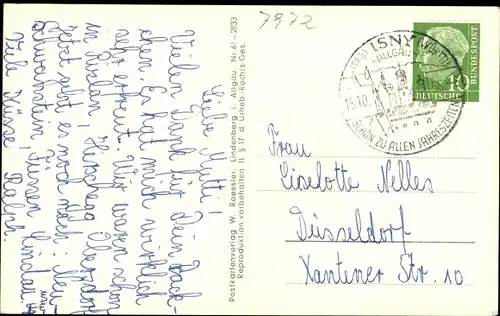 Liebe Mutti!
Vielen Dank für Dein Päck-
chen. Es hat mich wirklich
sehr erfreut. Wir waren schon
in Oberstdorf
jetzt geht es noch nach: Neu-
schwanstein, Füssen, Lindau
Viele Küsse, Ralph.
Postkartenverlag W. Roessler, Lindenberg i. Allgäu. Nr. 61-2833
Reproduktion vorbehalten lt. § 17 d. Urheb.-Rechts-Ges.
7972
ISNY (WÜRTT)
ALLGÄU
15.10.
SCHÖN ZU ALLEN JAHRESZEITEN
10
DEUTSCHE
BUNDESPOST
Frau
Liselotte Nelles
Düsseldorf
Xantener Str. 10